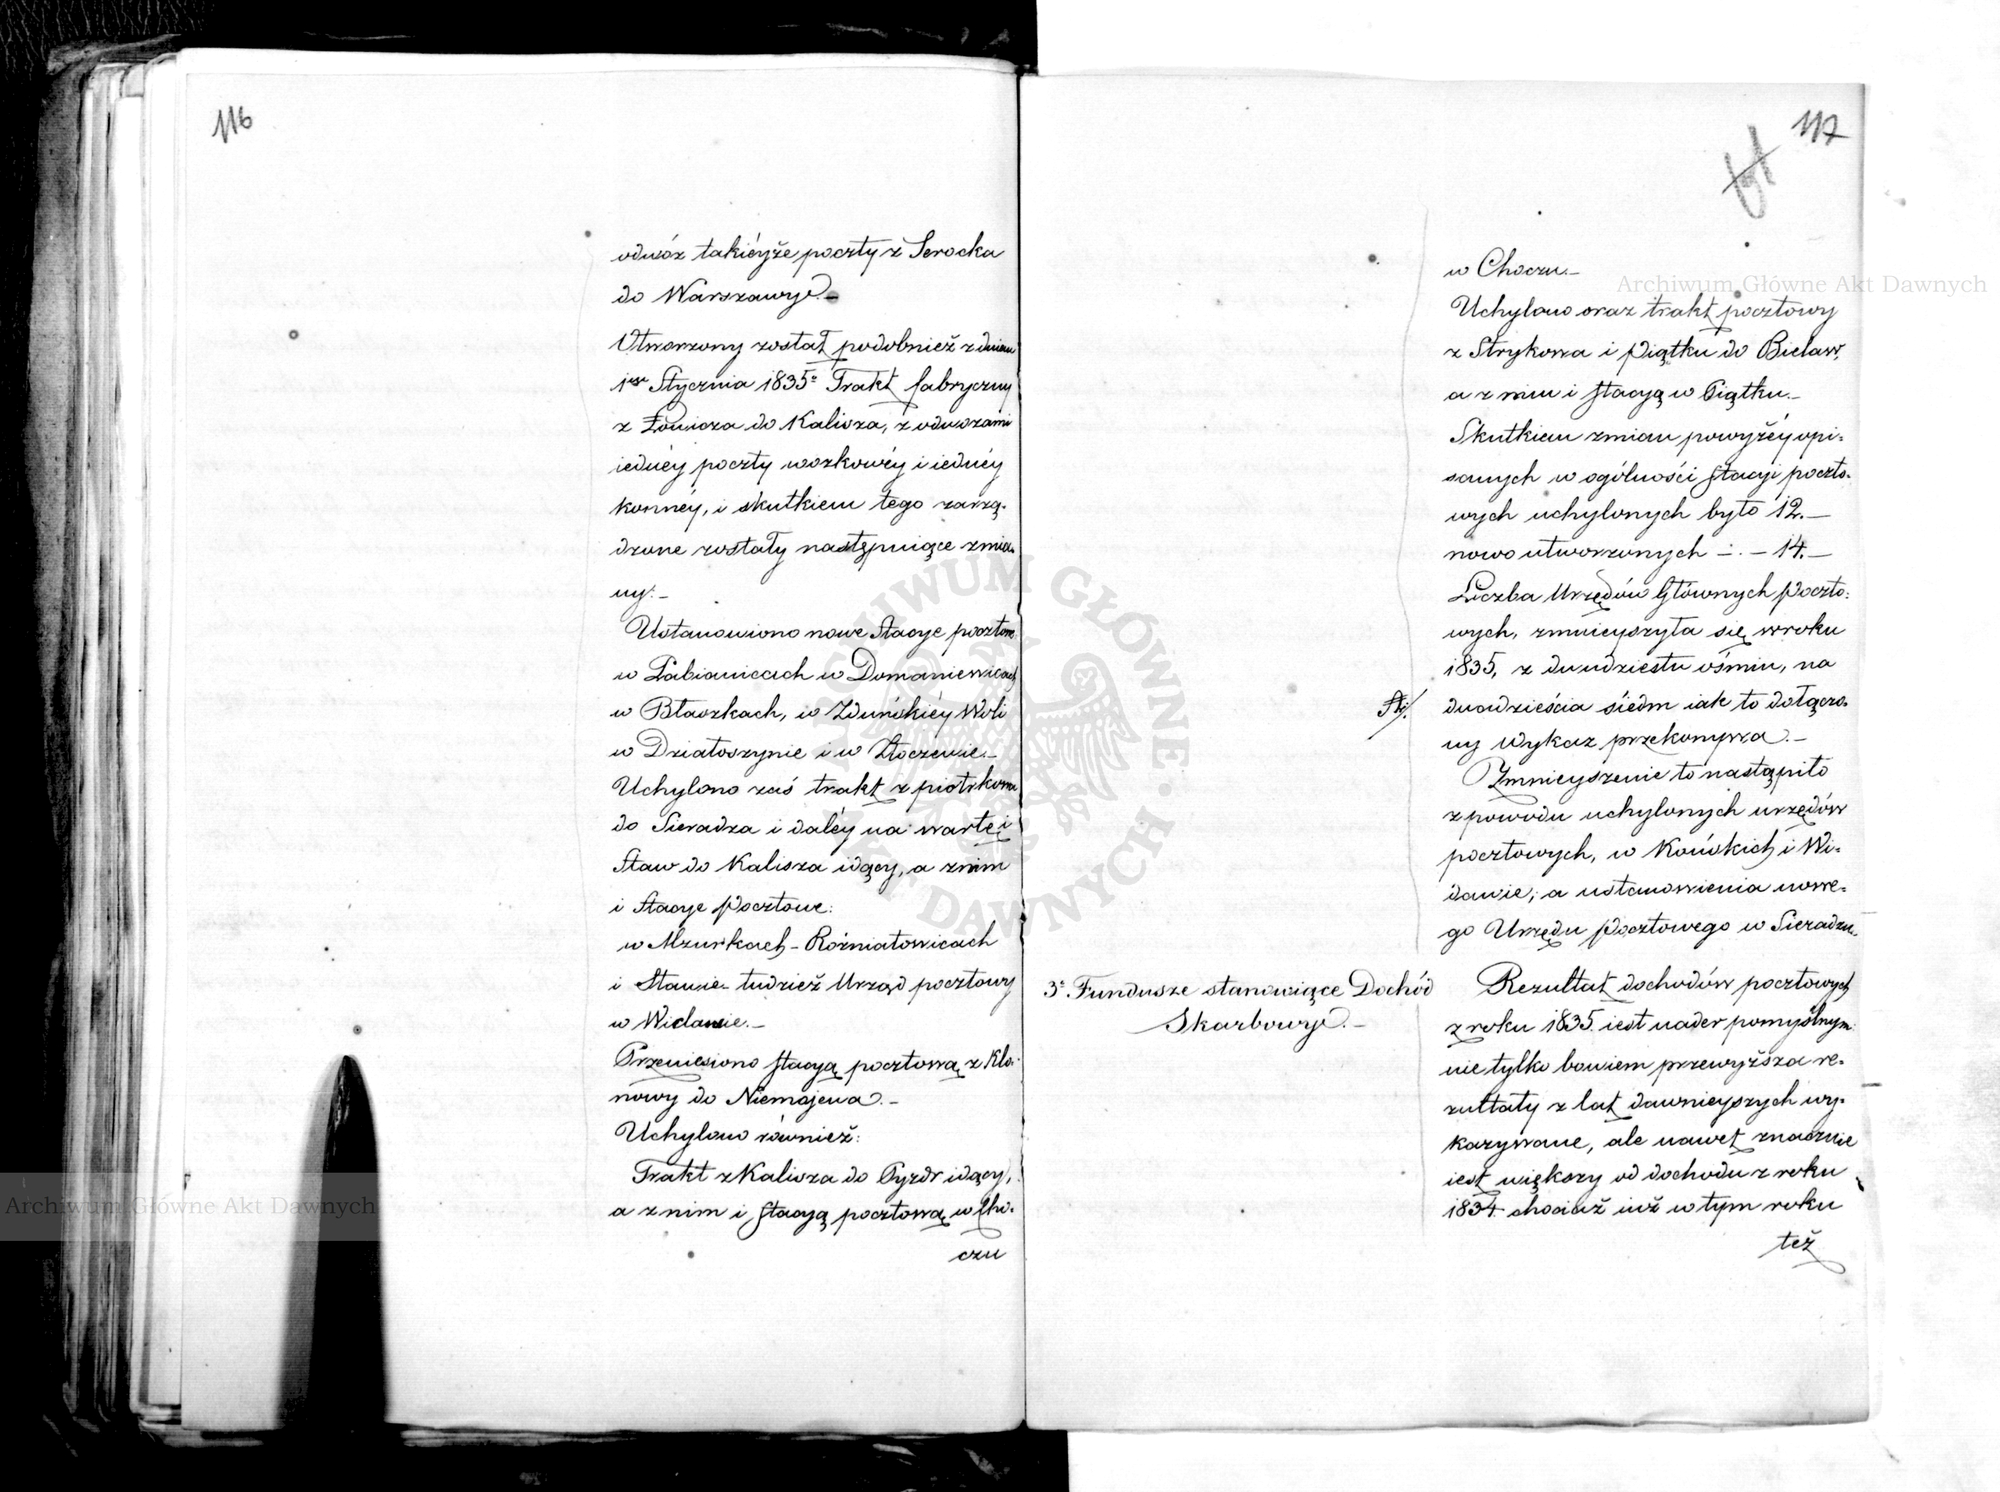 116
odwóz takiéyże poczty z Serocka
do Warszawy.–
Utworzony został podobnież z dniem
1ym Stycznia 1835o Trakt fabryczny
z Łowicza do Kalisza, z odwozami
iednéy poczty wozkowéy i iednéy
konnéy, i skutkiem tego zarzą-
dzone zostały następuiące zmia-
ny:–
Ustanowiono nowe Stacye pocztowe
w Pabianicach w Domaniewicach
w Błaszkach, w Zduńskiéy Woli
w Działoszynie i w Złoczewie.–
Uchylono zaś trakt z piotrkowa
do Sieradza i daléy na wartę i
Staw do Kalisza idący, a z nim
i Stacye Pocztowe:
w Mzurkach – Rożniatowicach
i Stawie – tudzież Urząd pocztowy
w Widawie.–
Przeniesiono stacyą pocztową z Klo-
nowy do Niemojewa.–
Uchylono również:
Trakt z Kalisza do Pyzdr idący,
a z nim i stacyą pocztową w Cho-
czu
117
w Choczu.–
Uchylono oraz trakt pocztowy
z Strykowa i Piątku do Bielaw,
a z nim i stacyą w Piątku.–
Skutkiem zmian powyżéy opi-
sanych w ogólności stacyi poczto-
wych uchylonych było 12.–
nowo utworzonych –.– 14.–
Liczba Urzędów Głównych Poczto-
wych, zmnieyszyła się w roku
1835, z dwudziestu ośmiu, na
dwadzieścia siedm iak to dołączo-
ny Wykaz przekonywa.–
Zmnieyszenie to nastąpiło
z powodu uchylonych urzędów
pocztowych, w Końskich i Wi-
dawie; a ustanowienia nowe-
go Urzędu Pocztowego w Sieradzu.
3o Fundusze stanowiące Dochód
Skarbowy.–
Rezultat dochodów pocztowych
z roku 1835. iest nader pomyślnym
nie tylko bowiem przewyższa re-
zultaty z lat dawnieyszych wy-
kazywane, ale nawet znacznie
iest większy od dochodu z roku
1834 chociaż iuż w tym roku
też
Archiwum Główne Akt Dawnych
Archiwum Główne Akt Dawnych
ARCHIWUM GŁÓWNE AKT DAWNYCH